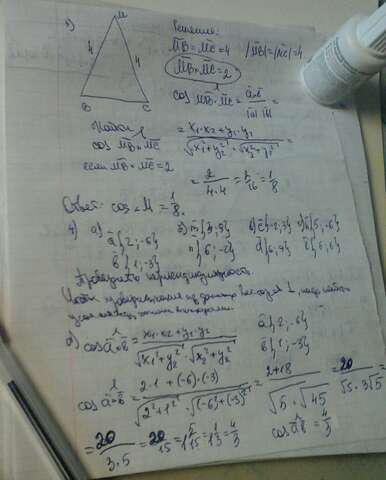 3)
M
4
4
B
C
Решение:
M̅B̅ = M̅C̅ = 4 |M̅B̅| = |M̅C̅| = 4
M̅B̅ · M̅C̅ = 2
cos M̅B̅ ^ M̅C̅ = a̅·b̅ / |a̅|·|b̅| =
Найти
cos M̅B̅ ^ M̅C̅
если M̅B̅ · M̅C̅ = 2
= x₁·x₂ + y₁·y₂ / √x₁² + y₁² · √x₂² + y₂² =
= 2 / 4·4 = 2/16 = 1/8
Ответ: cos M = 1/8.
4) а)
a̅{2; -6}
b̅{1; -3}
Проверить перпендикулярность.
а) cos a̅ ^ b̅ = x₁·x₂ + y₁·y₂ / √x₁² + y₁² · √x₂² + y₂²
a̅{2; -6}
b̅{1; -3}
cos a̅ ^ b̅ = 2·1 + (-6)·(-3) / √2² + 1² · √(-6)² + (-3)² = 2 + 18 / √5 · √45 = 20 / √5 · 3√5 =
= 20 / 3·5 = 20/15 = 1 5/15 = 1 1/3 = 4/3
cos a̅ ^ b̅ = 4/3